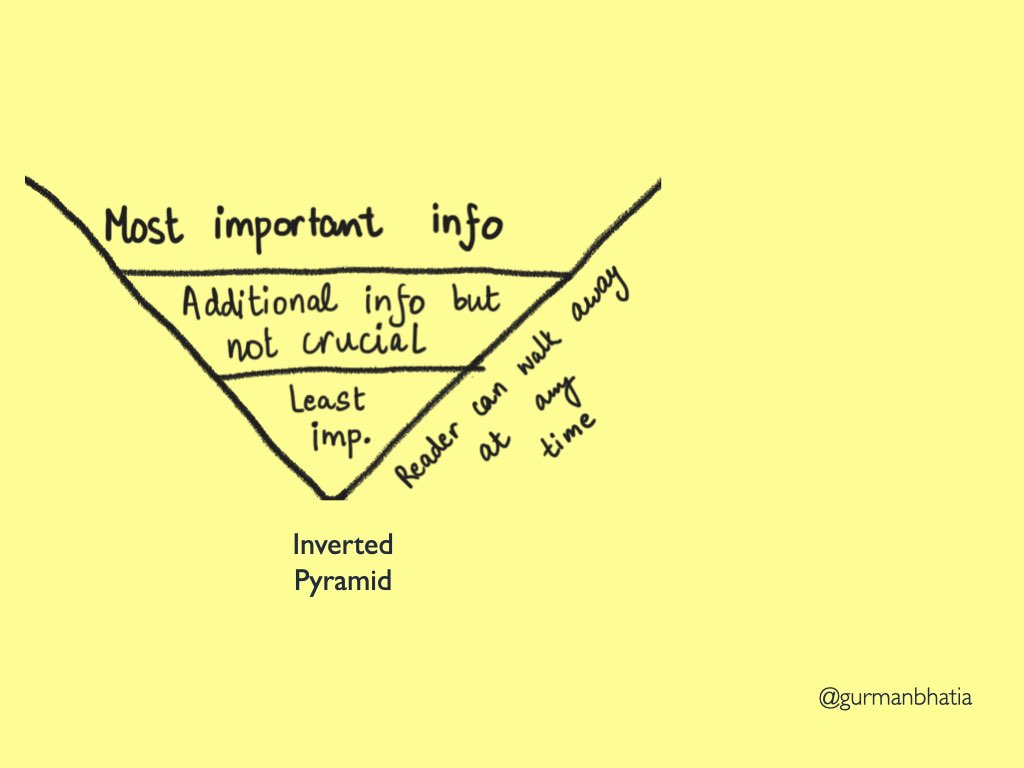 Most important info
Additional info but
not crucial
Least
imp.
Reader can walk away
at any
time
Inverted
Pyramid
@gurmanbhatia